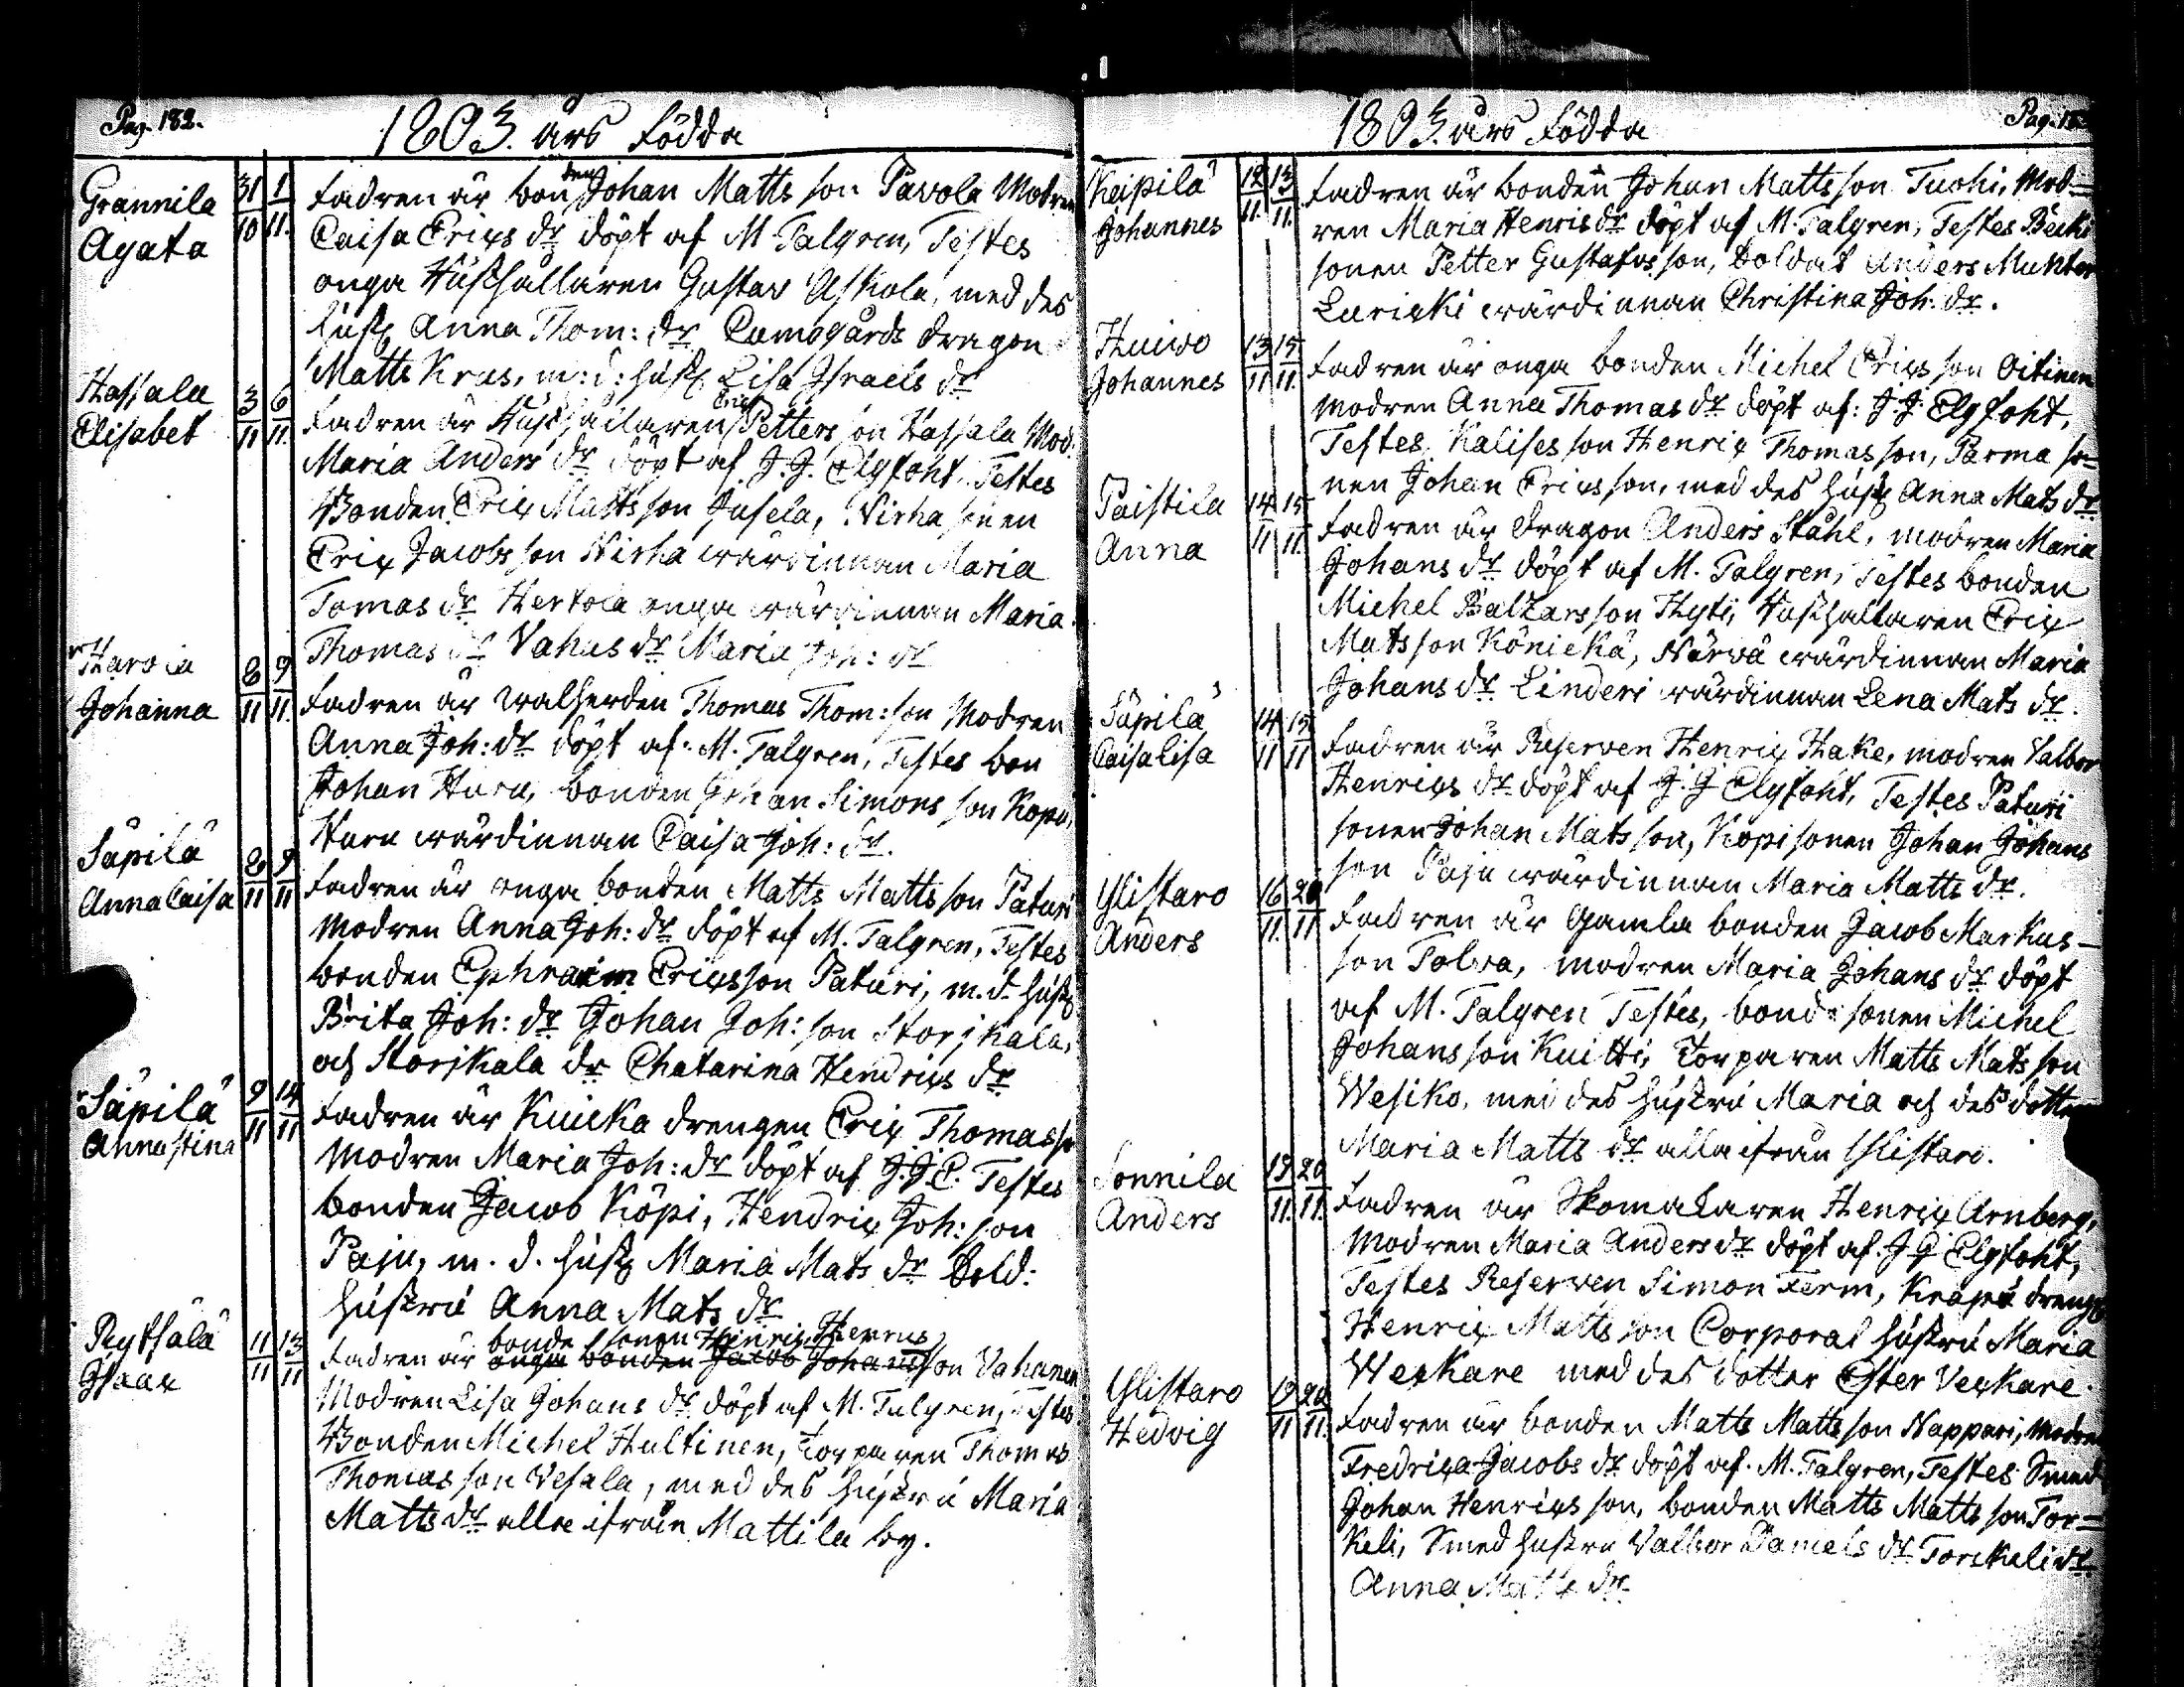 Pag. 182.
1803. års födda
Grannila
Agata
31 1
10 11.
Fadren är bonden Johan Mattsson Pavola Modren
Caisa Erixs dr döpt af M Talgren, Testes
unga Hushållaren Gustav Uskola, med des
husf Anna Thom: dr Cumogårds dragon
Matts Krus, m: d: husf Lisa Israels dr
Hassala
Elisabet
3 6
11 11.
Fadren är Hushållaren Erix Petters son Hassala Mod:
Maria Anders dr döpt af J. J. Elgfoht, Testes
Bonden Erix Matts son Jusela, Nirha sonen
Erix Jacobs son Nirha wärdinnan Maria
Tomas dr Hertola unga wärdinnan Maria
Thomas dr Vahus dr Maria Joh: dr
Harola
Johanna
8 9
11 11.
Fadren är walherden Thomas Thom: son Modren
Anna Joh: dr döpt af. M. Talgren, Testes bon
Johan Haru, bonden Johan Simons son Kopu,
Haru wärdinnan Caisa Joh: dr.
Säpilä
Anna Caisa
8 9
11 11
Fadren är unga bonden Matts Matts son Paturi
Modren Anna Joh: dr döpt af M. Talgren, Testes
bonden Ephraim Erixsson Paturi, m. d. husf
Brita Joh: dr Johan Joh: son Storjkala,
och Storjkala dr Chatarina Hendrixs dr
Säpilä
Annastina
9 14
11 11
Fadren är Kuicka drengen Erix Thomas so
Modren Maria Joh: dr döpt af J. J. E. Testes
bonden Jacob Köpi, Hendrix Joh: son
Paju, m. d. husf Maria Mats dr Sold:
hustru Anna Mats dr
Peytsälä
Isaax
11 13
11 11
bonde sonen Henrix Henrixs
Fadren är unga bonden Jacob Johansson Vahanen
Modren Lisa Johans dr döpt af M. Talgren, Testes
Bonden Michel Hultinen, Torparen Thomas
Thomas son Vesala, med des hustru Maria
Matts dr alla ifrån Mattila by.
1803. års födda
Pag. 18
Keipilä
Johannes
12 13
11. 11.
Fadren är bonden Johan Matts son Tuohi, Mod-
ren Maria Henris dr döpt af M. Talgren, Testes Becki
sonen Petter Gustafs son, Soldat Anders Munter
Lurixki wärdinnan Christina Joh: dr.
Huivo
Johannes
13 15
11 11.
Fadren är unga bonden Michel Erixs son Oitinen
Modren Anna Thomas dr döpt af: J. J. Elgfoht,
Testes Kalises son Henrix Thomas son, Parma so-
nen Johan Erixsson, med des husf Anna Mats dr
Paistila
Anna
14 15
11 11.
Fadren är dragon Anders Ståhl, modren Maria
Johans dr döpt af M. Talgren, Testes bonden
Michel Baltzars son Hyti, Hushållaren Erix
Mats son Könickä, Närvä wärdinnan Maria
Johans dr Linderi wärdinnan Lena Mats dr.
Säpilä
Caisa lisa
14 15
11 11
Fadren är Reserven Henrix Hake, modren Valbor
Henrixs dr döpt af J. J Elgfoht, Testes Paturi
sonen Johan Mats son, Köpi sonen Johan Johans
son Paju wärdinnan Maria Matts dr.
Ylistaro
Anders
16 20
11. 11
Fadren är gamla bonden Jacob Markus-
son Tolva, modren Maria Johans dr döpt
af M. Talgren Testes, bonde sonen Michel
Johans son Kuitti, Torparen Matts Mats son
Wesiko, med des hustru Maria och des dotter
Maria Matts dr alla ifrån Ylistaro.
Sonnila
Anders
19 20
11. 11.
Fadren är Skomakaren Henrix Arnberg,
Modren Maria Anders dr döpt af. J J Elgfoht,
Testes Reserven Simon Ferm, Knapä dreng
Henrix Matts son Corporal hustru Maria
Wexkare med des dotter Ester Vexkare.
Ylistaro
Hedvig
19 20
11 11.
Fadren är bonden Matts Matts son Nappari, modren
Fredrixa Jacobs dr döpt af. M. Talgren, Testes Smed
Johan Henrixs son, bonden Matts Matts son Tor-
keli, Smed hustru Valbor Daniels dr Torckeli dr
Anna Matts dr